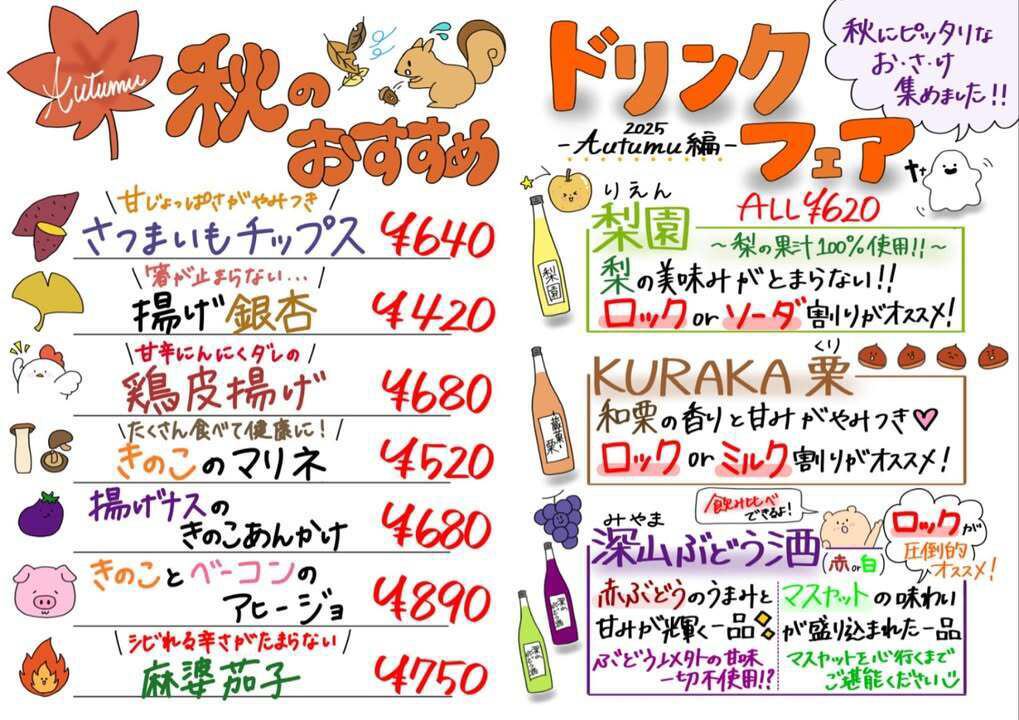 Autumu
秋の
おすすめ
甘じょっぱさがやみつき
さつまいもチップス ¥640
箸が止まらない...
揚げ銀杏 ¥420
甘辛にんにくダレの
鶏皮揚げ ¥680
たくさん食べて健康に!
きのこのマリネ ¥520
揚げナスの
きのこあんかけ ¥680
きのことベーコンの
アヒージョ ¥890
シビれる辛さがたまらない
麻婆茄子 ¥750
ドリンク
フェア
2025
-Autumu編-
秋にピッタリな
お・さ・け
集めました!!
ALL ¥620
りえん
梨園
～梨の果汁100%使用!!～
梨の美味みがとまらない!!
ロック or ソーダ割りがオススメ!
梨園
くり
KURAKA 栗
和栗の香りと甘みがやみつき♡
ロック or ミルク割りがオススメ!
飲み比べ
できるよ!
みやま
深山ぶどう酒
(赤or白)
ロックが
圧倒的
オススメ!
赤ぶどうのうまみと
甘みが輝く一品
ぶどう以外の甘味
一切不使用!?
マスカットの味わい
が盛り込まれた一品
マスカットを心行くまで
ご堪能ください